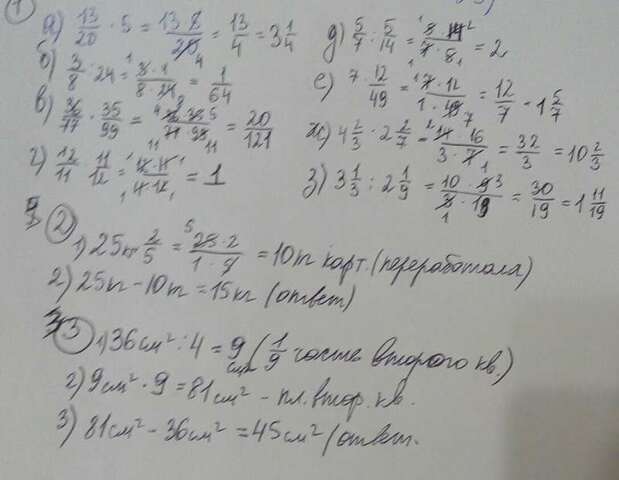 1
а) 13/20 · 5 = 13·5/20 = 13/4 = 3 1/4
б) 3/8 : 24 = 3·1/8·24 = 1/64
в) 36/77 · 35/99 = 36·35/77·99 = 20/121
г) 12/11 · 11/12 = 12·11/11·12 = 1
д) 5/7 : 5/14 = 5·14/7·5 = 2
е) 7 · 12/49 = 7·12/1·49 = 12/7 = 1 5/7
ж) 4 2/3 · 2 2/7 = 14·16/3·7 = 32/3 = 10 2/3
з) 3 1/3 : 2 1/9 = 10·9/3·19 = 30/19 = 1 11/19
2
1) 25кг · 2/5 = 25·2/1·5 = 10т карт. (переработала)
2) 25кг - 10т = 15кг (ответ)
3
1) 36см² : 4 = 9 см (1/9 часть второго кв.)
2) 9см² · 9 = 81см² - пл. втор. кв.
3) 81см² - 36см² = 45см² (ответ.